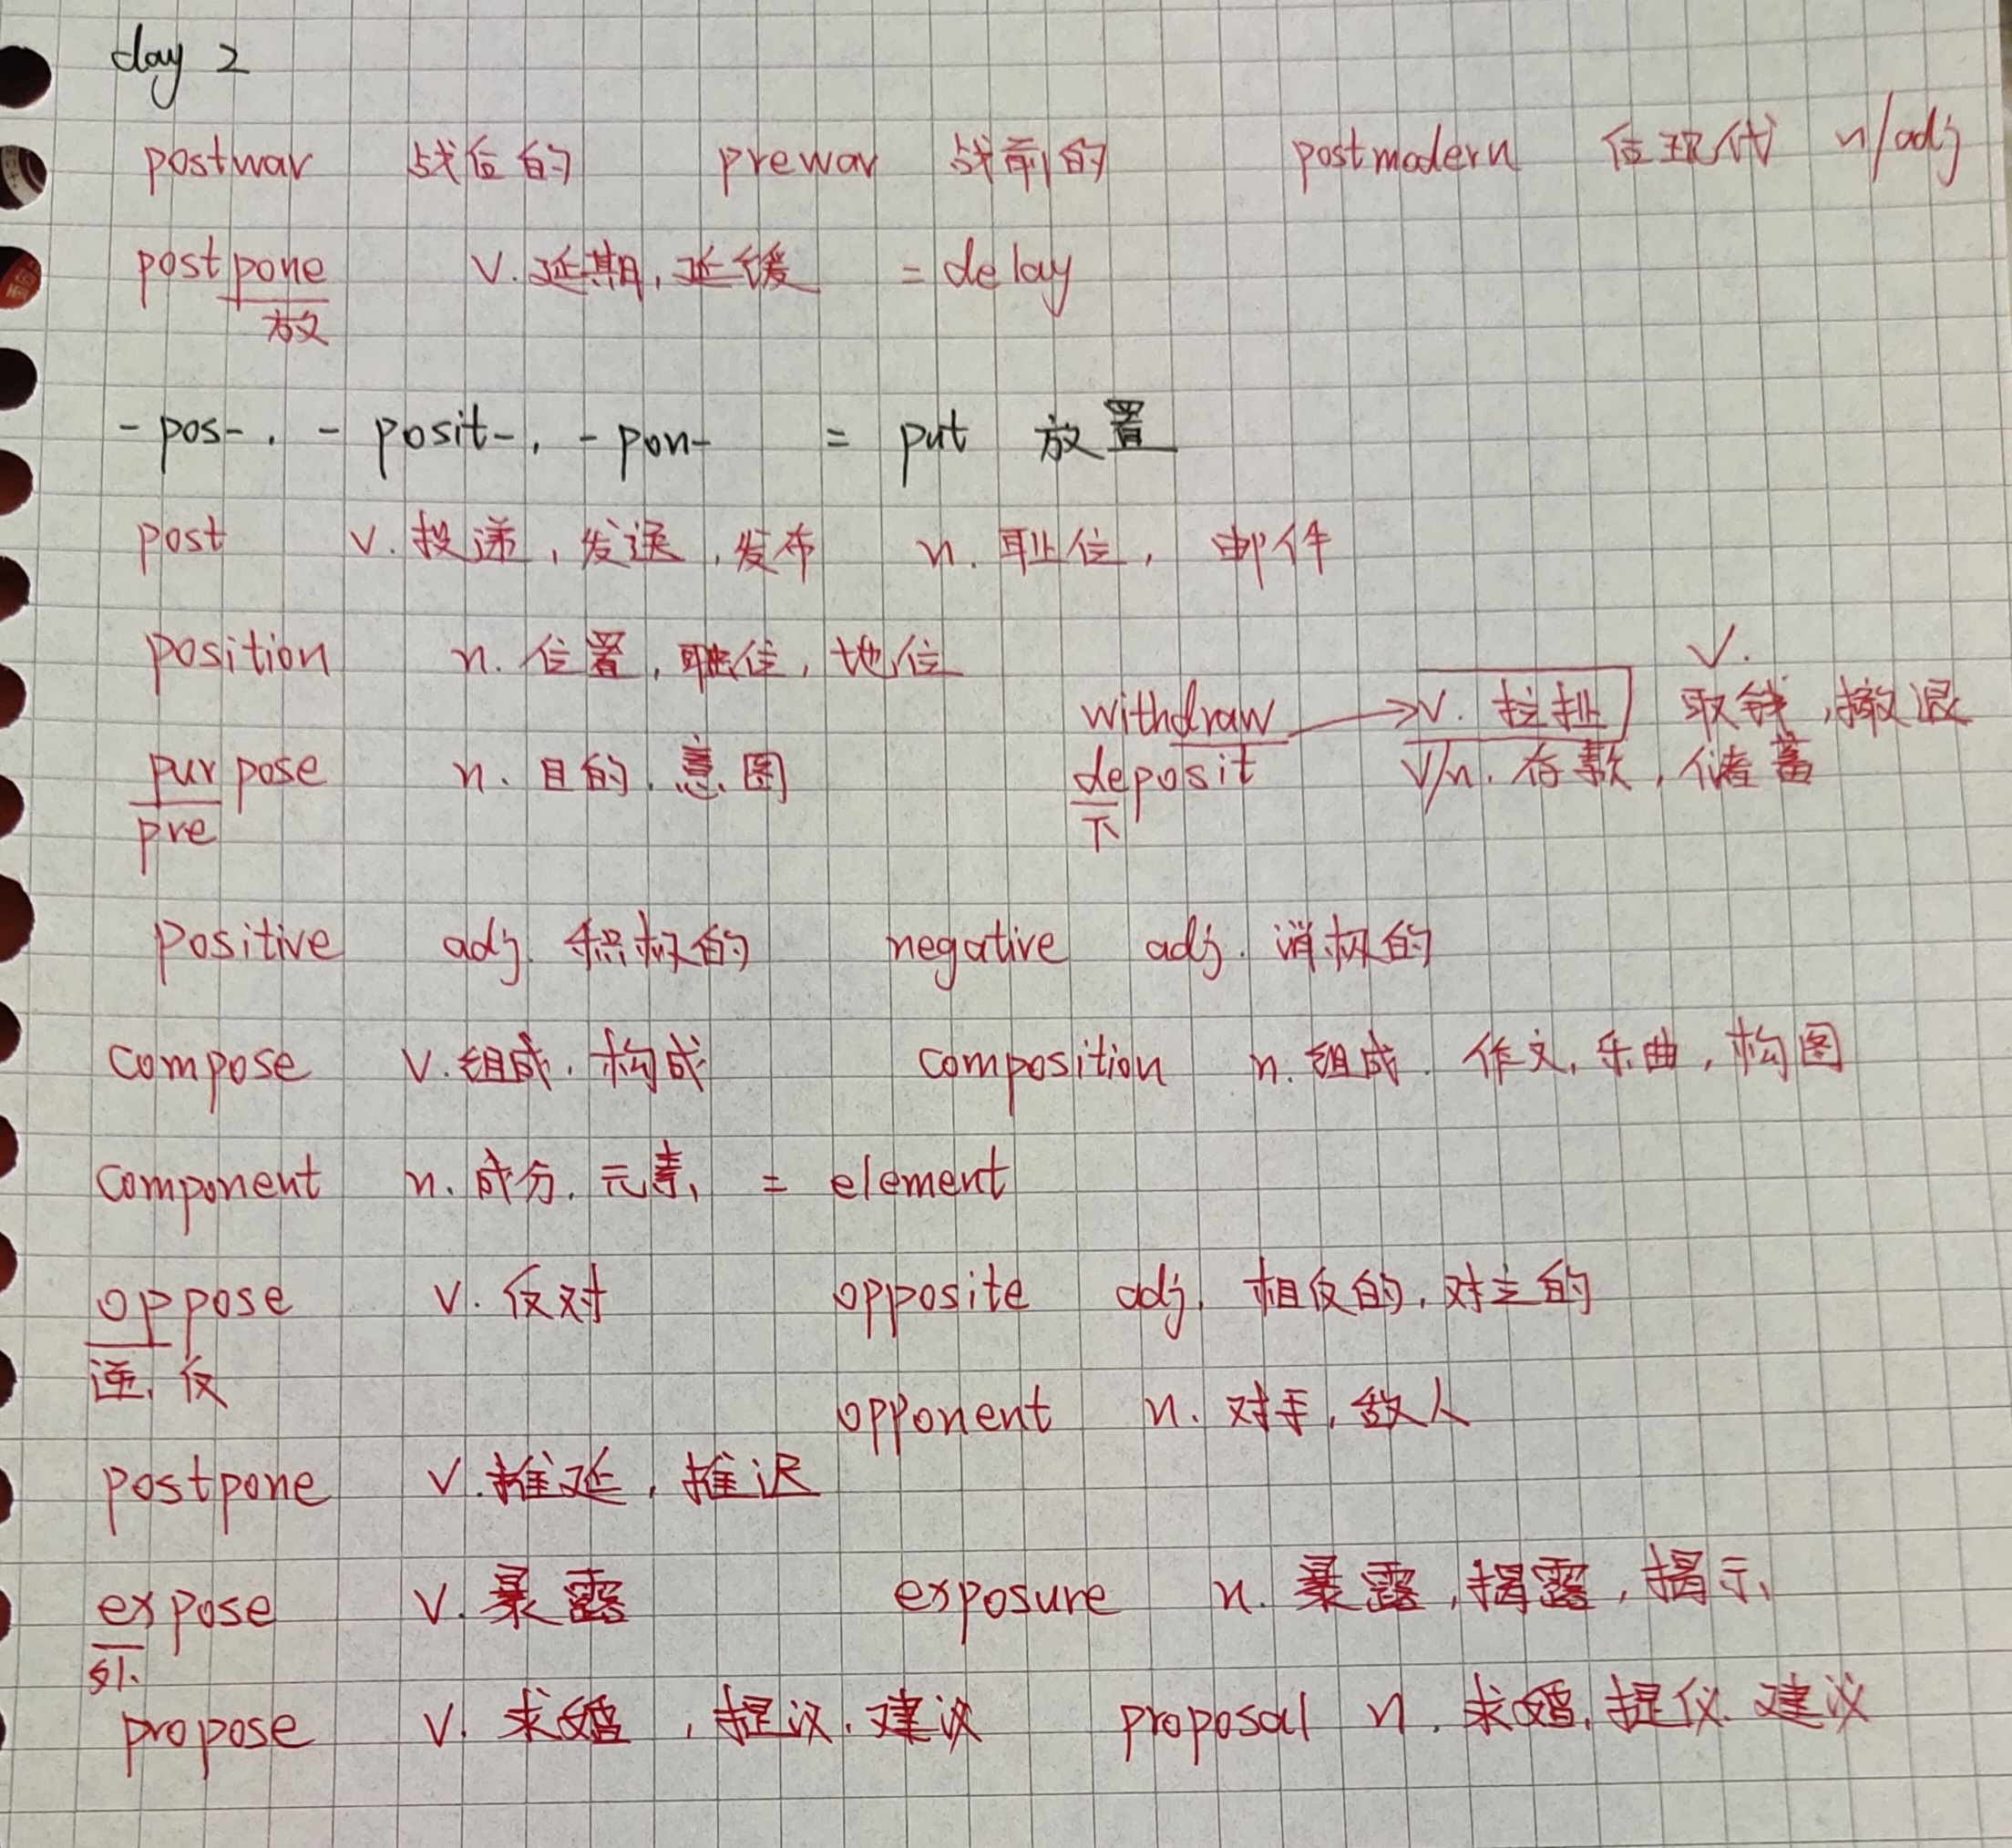 day 2
postwar 战后的 prewar 战前的 postmodern 后现代 n/adj
postpone v. 延期, 延缓 = delay
放
-pos-. -posit-. -pon- = put 放置
post v. 投递, 发送, 发布 n. 职位, 邮件
position n. 位置, 职位, 地位
v.
withdraw → v. 拉扯 取钱, 撤退
purpose n. 目的. 意图 deposit v/n. 存款, 储蓄
pre 下
positive adj. 积极的 negative adj. 消极的
compose v. 组成. 构成 composition n. 组成. 作文, 乐曲, 构图
component n. 成分. 元素, = element
oppose v. 反对 opposite adj. 相反的, 对立的
逆, 反
opponent n. 对手, 敌人
postpone v. 推延, 推迟
expose v. 暴露 exposure n. 暴露, 揭露, 揭示
外
propose v. 求婚, 提议. 建议 proposal n. 求婚, 提议. 建议